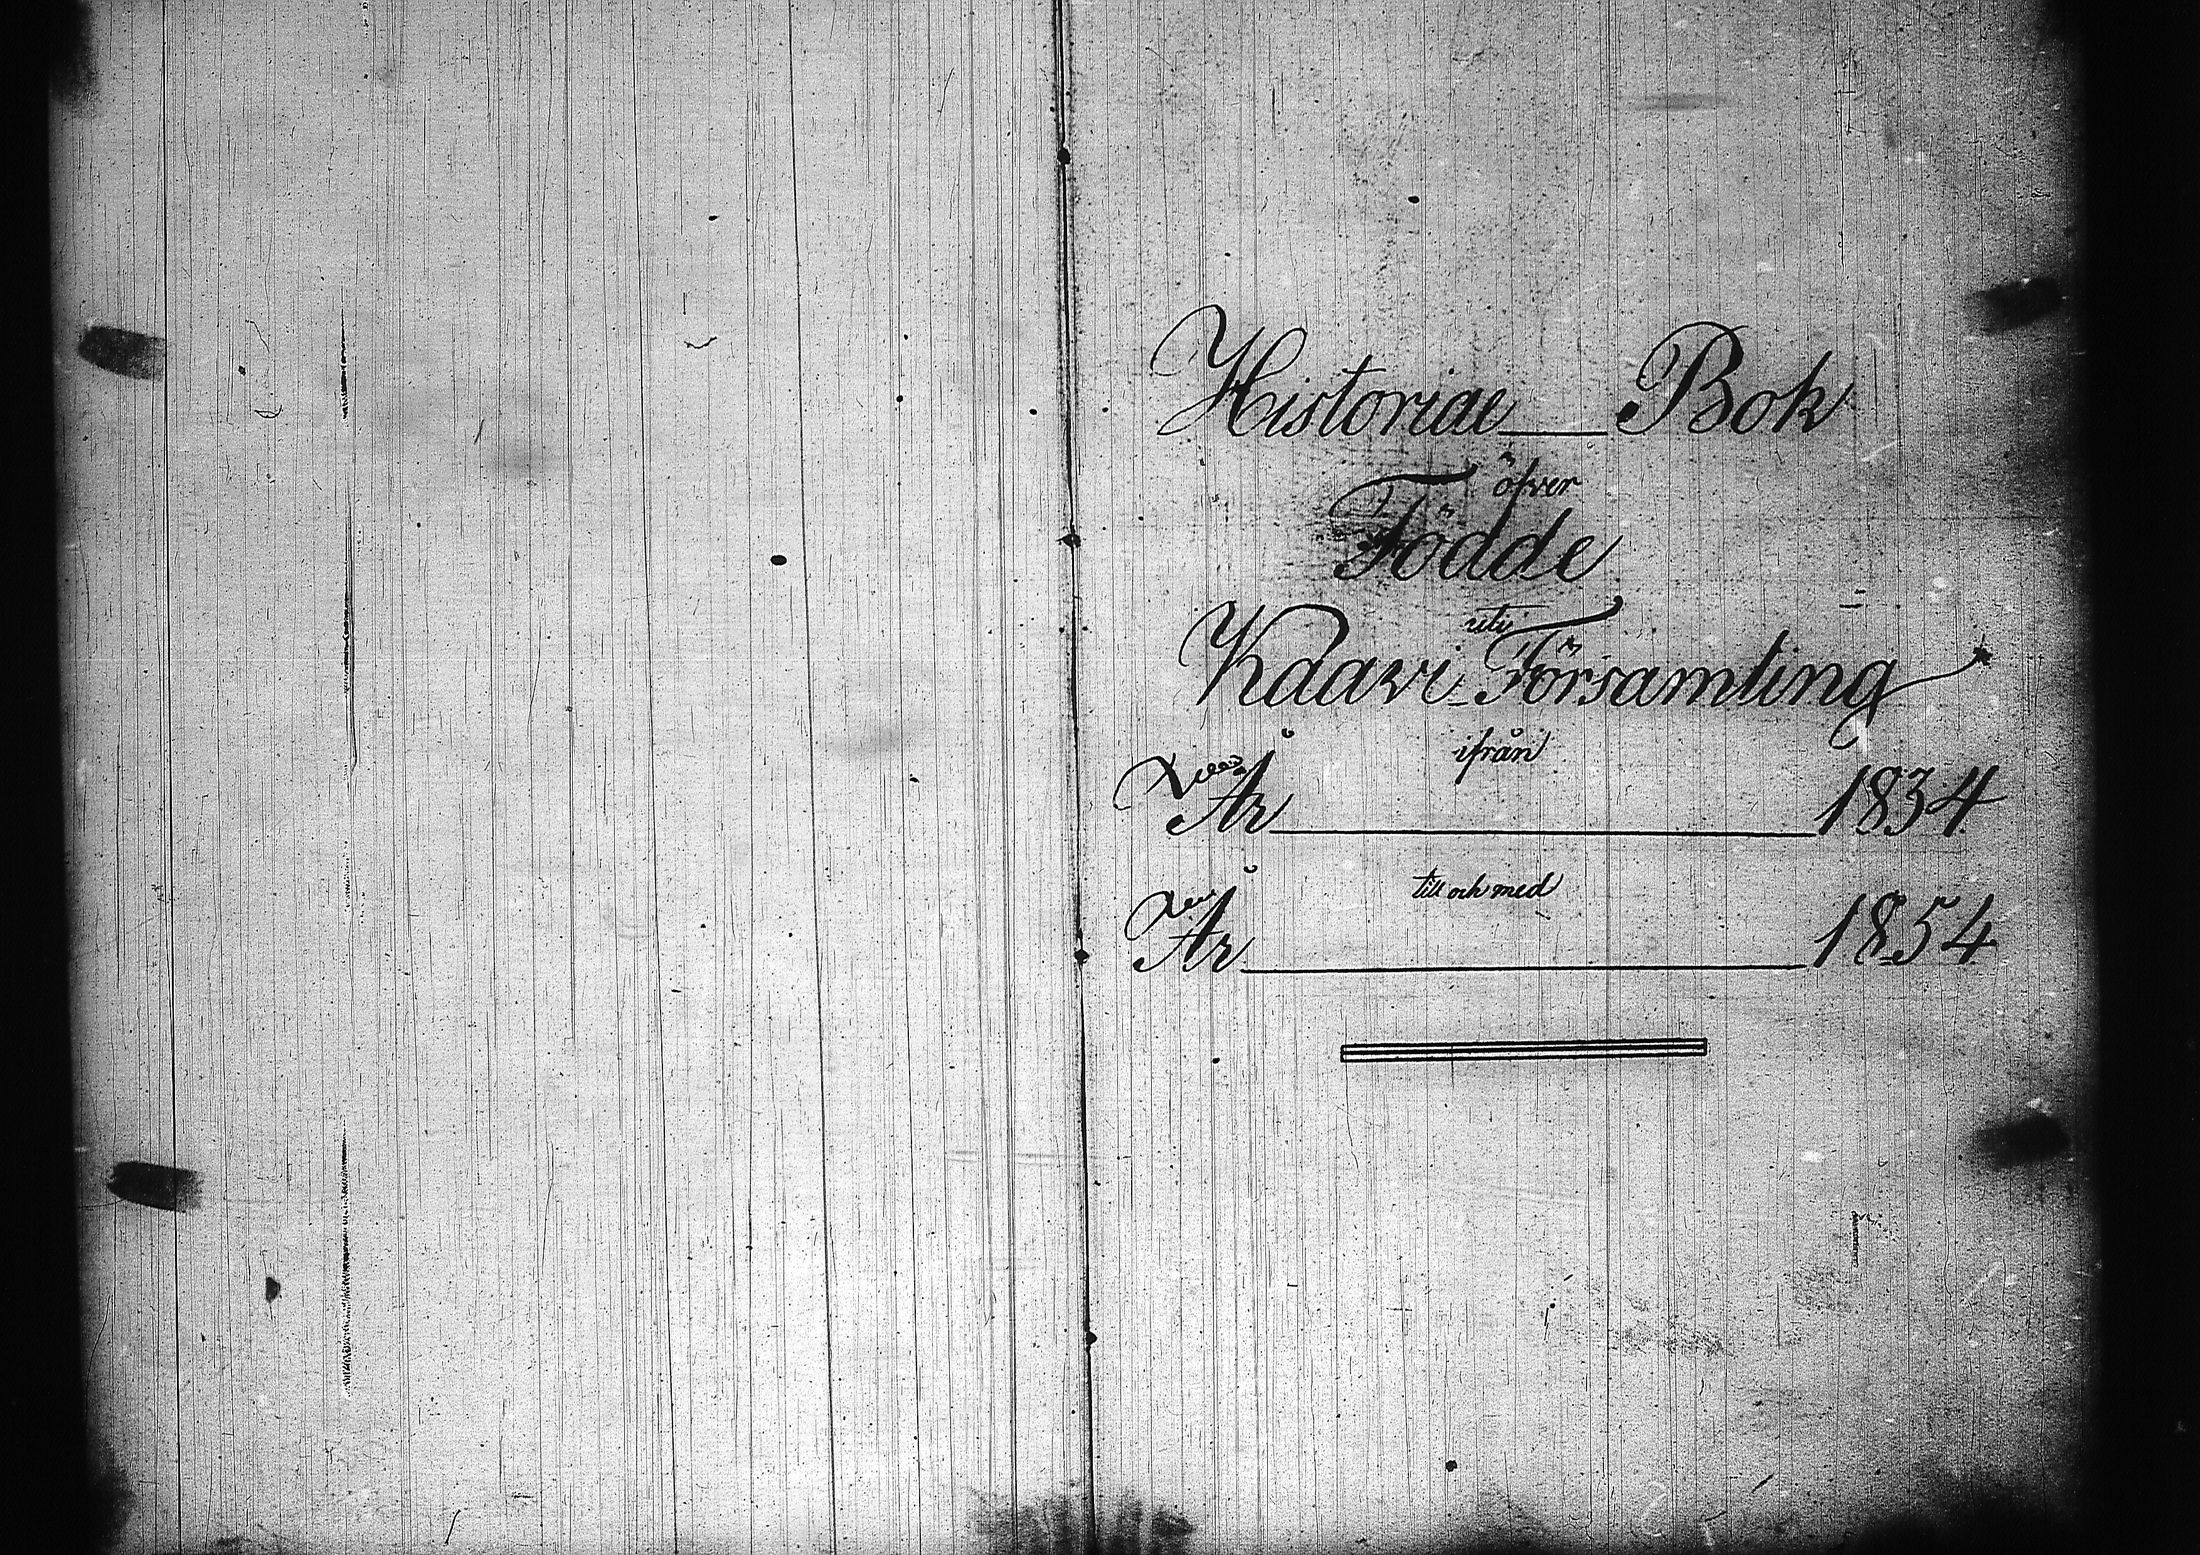 Historiae Bok
öfver
Födde
uti
Kaavi Församling
ifrån
År 1834.
till och med
År 1854